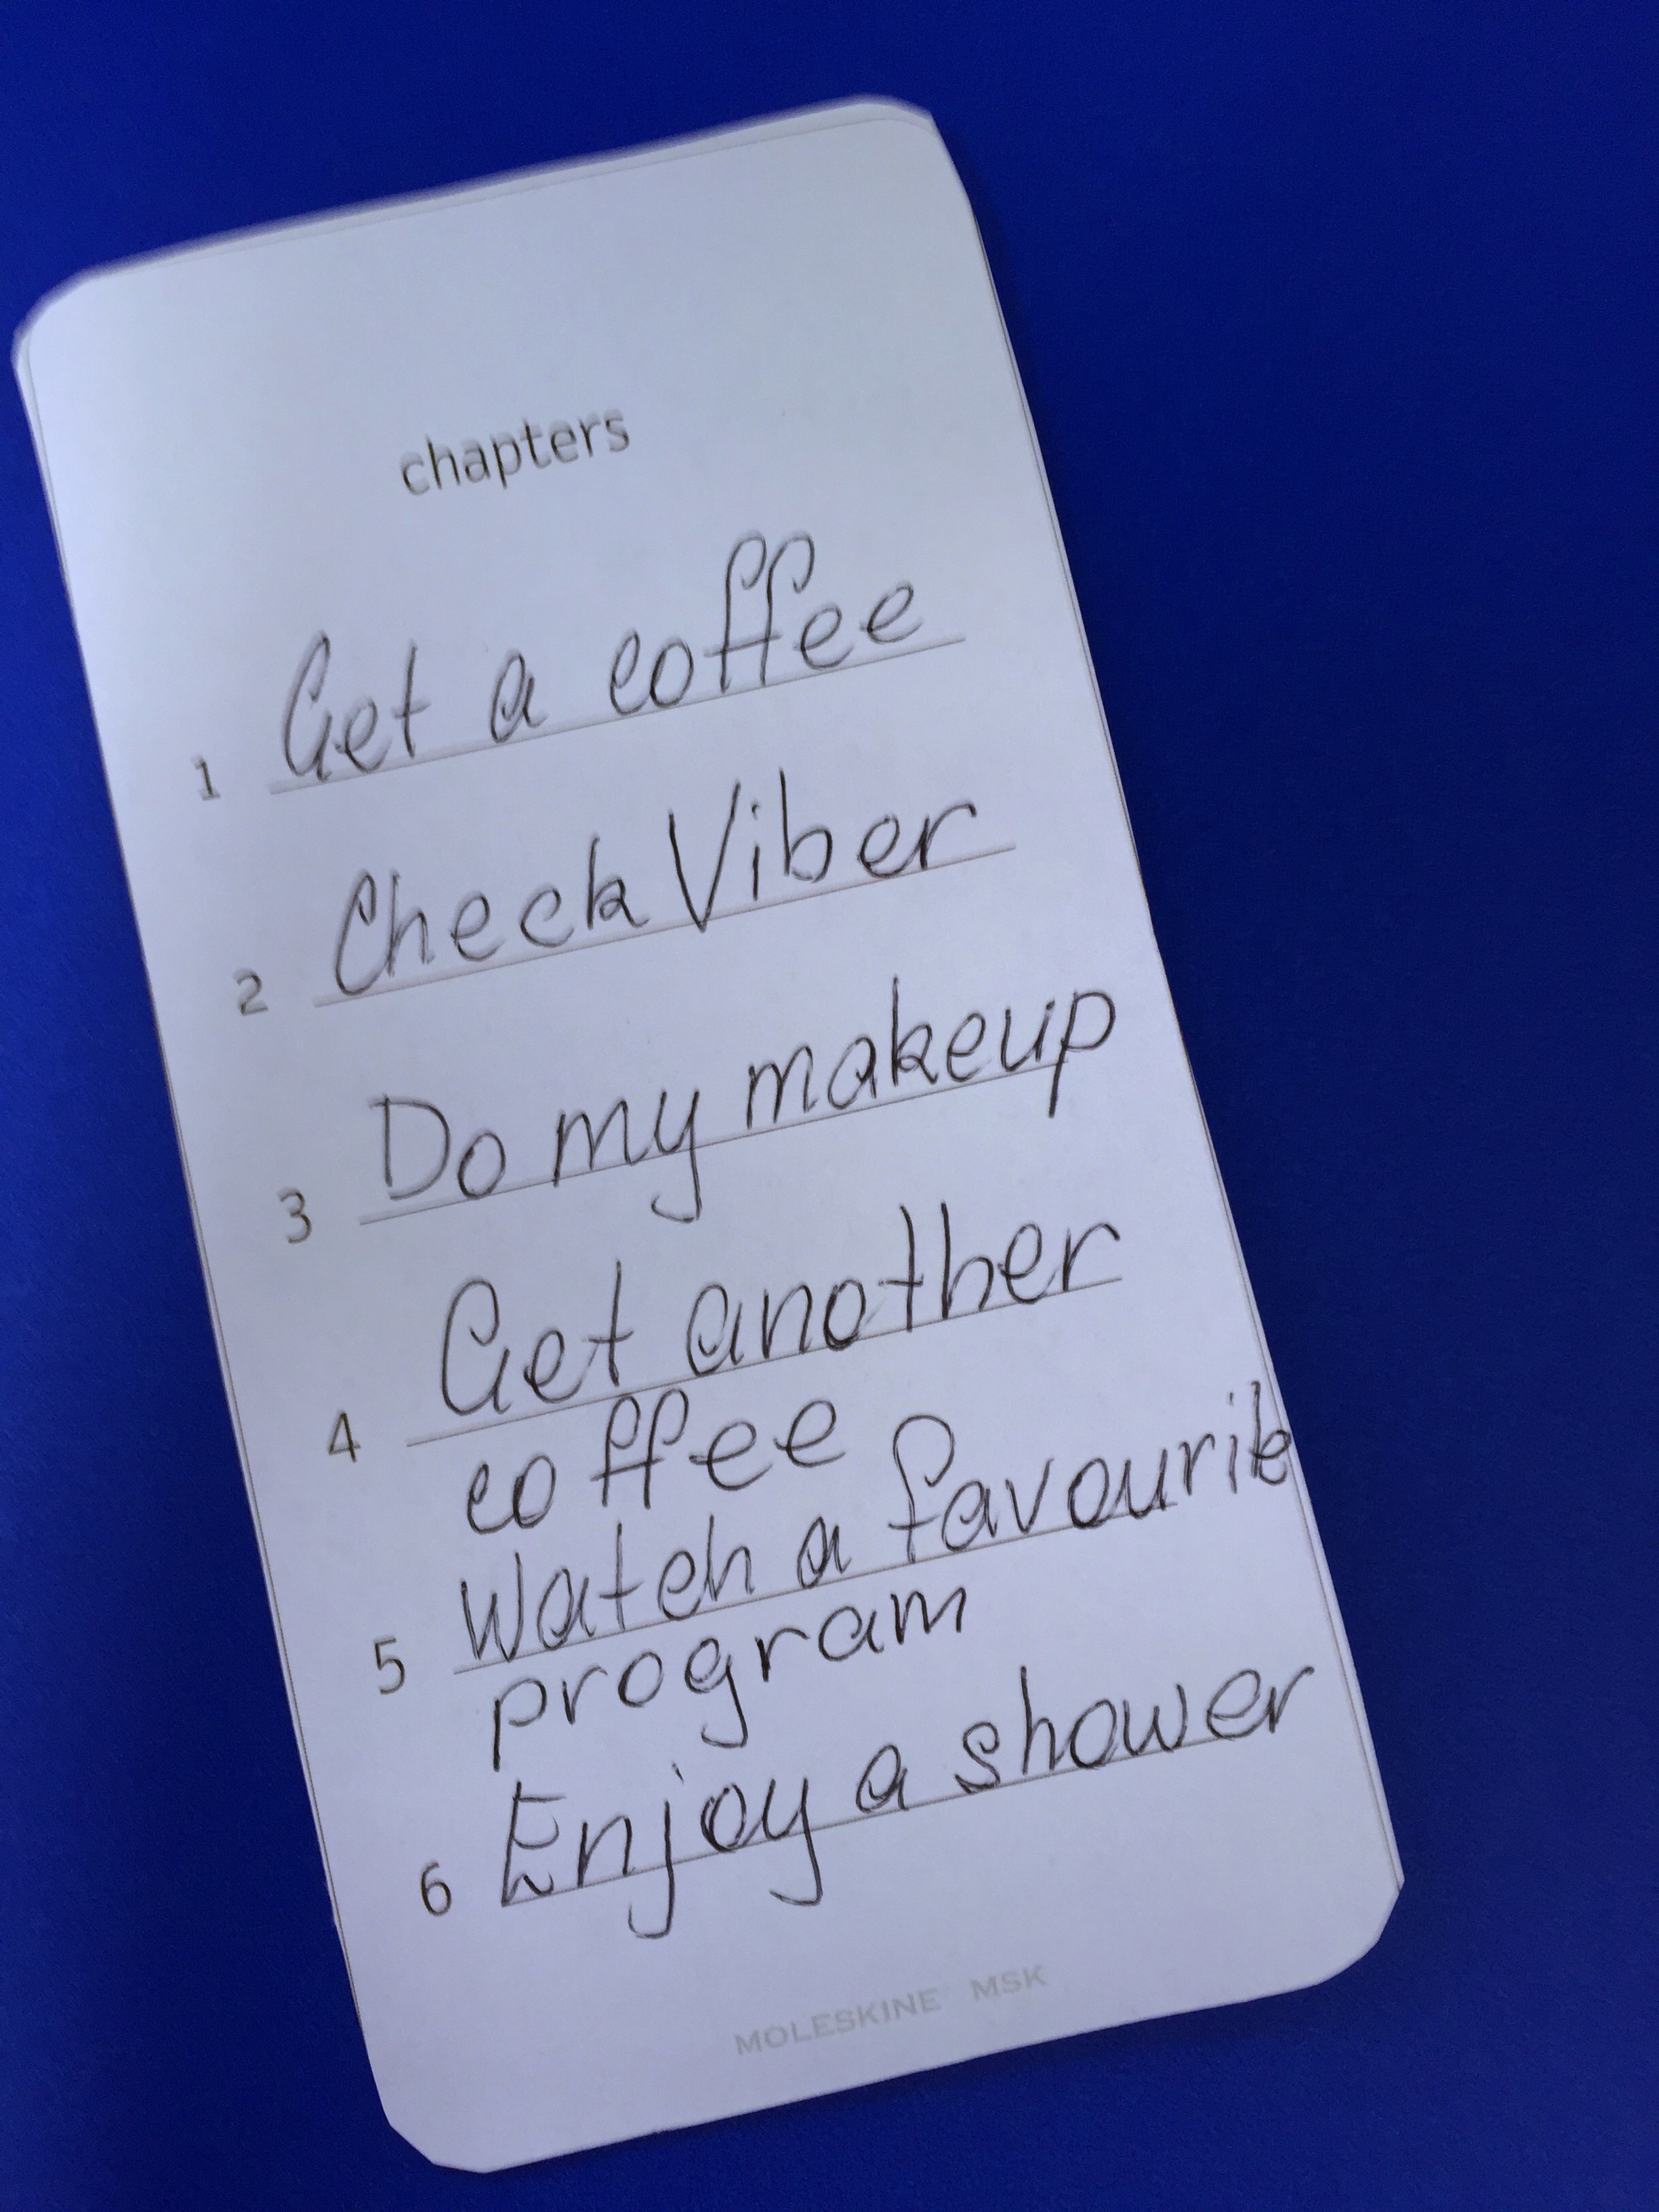 chapters
1 Get a coffee
2 Check Viber
3 Do my makeup
4 Get another
coffee
5 Watch a favourite
program
6 Enjoy a shower
MOLESKINE MSK